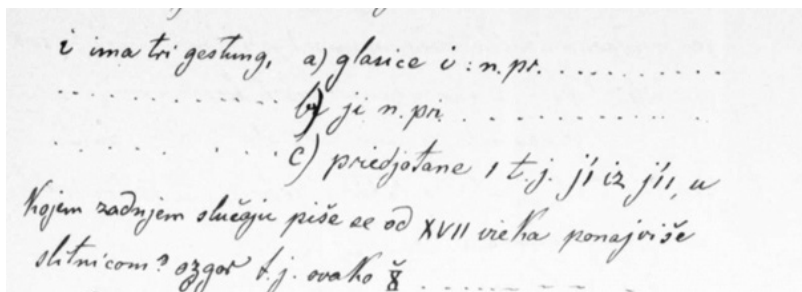 i ima tri gestung, a) glasice i : n. pr. . . . . . . . . .
. . . . . . . . . . . . b) ji n. pr. . . . . . . . . . .
. . . . . . . . . . c) priedjotane ı t. j. ji iz jıı, u
kojem zadnjem slučaju piše se od XVII vieka ponajviše
slitnicom? ozgor t. j. ovako . . . . . . . . .